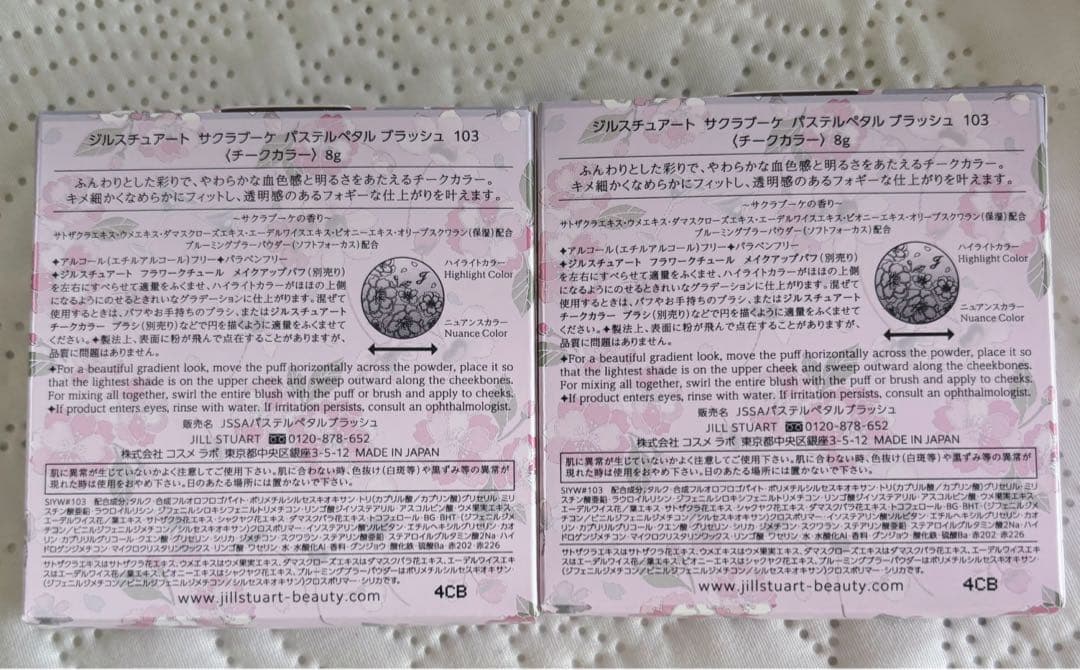 ジルスチュアート サクラブーケ パステルペタル ブラッシュ 103
〈チークカラー〉 8g
ふんわりとした彩りで、やわらかな血色感と明るさをあたえるチークカラー。
キメ細かくなめらかにフィットし、透明感のあるフォギーな仕上がりを叶えます。
～サクラブーケの香り～
サトザクラエキス・ウメエキス・ダマスクローズエキス・エーデルワイスエキス・ピオニーエキス・オリーブスクワラン（保湿）配合
ブルーミングブラーパウダー（ソフトフォーカス）配合
✦アルコール（エチルアルコール）フリー✦パラベンフリー
✦ジルスチュアート フラワークチュール メイクアップパフ（別売り）
を左右にすべらせて適量をふくませ、ハイライトカラーがほほの上側
になるようにのせるときれいなグラデーションに仕上がります。混ぜて
使用するときは、パフやお手持ちのブラシ、またはジルスチュアート
チークカラー ブラシ（別売り）などで円を描くように適量をふくませて
ください。✦製法上、表面に粉が飛んで点在することがありますが、
品質に問題はありません。
ハイライトカラー
Highlight Color
ニュアンスカラー
Nuance Color
✦For a beautiful gradient look, move the puff horizontally across the powder, place it so
that the lightest shade is on the upper cheek and sweep outward along the cheekbones.
For mixing all together, swirl the entire blush with the puff or brush and apply to cheeks.
✦If product enters eyes, rinse with water. If irritation persists, consult an ophthalmologist.
販売名 JSSAパステルペタルブラッシュ
JILL STUART 0120-878-652
株式会社 コスメ ラボ 東京都中央区銀座3-5-12 MADE IN JAPAN
肌に異常が生じていないかよく注意してご使用下さい。肌に合わない時、色抜け（白斑等）や黒ずみ等の異常が
現れた時は使用をおやめ下さい。日のあたる場所には置かないで下さい。
SIYW#103 配合成分：タルク・合成フルオロフロゴパイト・ポリメチルシルセスキオキサン・トリ（カプリル酸／カプリン酸）グリセリル・ミリ
スチン酸亜鉛・ラウロイルリシン・ジフェニルシロキシフェニルトリメチコン・リンゴ酸ジイソステアリル・アスコルビン酸・ウメ果実エキス・
エーデルワイス花／葉エキス・サトザクラ花エキス・シャクヤク花エキス・ダマスクバラ花エキス・トコフェロール・BG・BHT・（ジフェニルジメチ
コン／ビニルジフェニルジメチコン／シルセスキオキサン）クロスポリマー・イソステアリン酸ソルビタン・エチルヘキシルグリセリン・カオ
リン・カプリリルグリコール・クエン酸・グリセリン・シリカ・ジメチコン・スクワラン・ステアリン酸亜鉛・ステアロイルグルタミン酸2Na・ハイ
ドロゲンジメチコン・マイクロクリスタリンワックス・リンゴ酸・ワセリン・水・水酸化Al・香料・グンジョウ・酸化鉄・硫酸Ba・赤202・赤226
サトザクラエキスはサトザクラ花エキス、ウメエキスはウメ果実エキス、ダマスクローズエキスはダマスクバラ花エキス、エーデルワイスエキ
スはエーデルワイス花／葉エキス、ピオニーエキスはシャクヤク花エキス、ブルーミングブラーパウダーはポリメチルシルセスキオキサン・
（ジフェニルジメチコン／ビニルジフェニルジメチコン／シルセスキオキサン）クロスポリマー・シリカです。
www.jillstuart-beauty.com
4CB
ジルスチュアート サクラブーケ パステルペタル ブラッシュ 103
〈チークカラー〉 8g
ふんわりとした彩りで、やわらかな血色感と明るさをあたえるチークカラー。
キメ細かくなめらかにフィットし、透明感のあるフォギーな仕上がりを叶えます。
～サクラブーケの香り～
サトザクラエキス・ウメエキス・ダマスクローズエキス・エーデルワイスエキス・ピオニーエキス・オリーブスクワラン（保湿）配合
ブルーミングブラーパウダー（ソフトフォーカス）配合
✦アルコール（エチルアルコール）フリー✦パラベンフリー
✦ジルスチュアート フラワークチュール メイクアップパフ（別売り）
を左右にすべらせて適量をふくませ、ハイライトカラーがほほの上側
になるようにのせるときれいなグラデーションに仕上がります。混ぜて
使用するときは、パフやお手持ちのブラシ、またはジルスチュアート
チークカラー ブラシ（別売り）などで円を描くように適量をふくませて
ください。✦製法上、表面に粉が飛んで点在することがありますが、
品質に問題はありません。
ハイライトカラー
Highlight Color
ニュアンスカラー
Nuance Color
✦For a beautiful gradient look, move the puff horizontally across the powder, place it so
that the lightest shade is on the upper cheek and sweep outward along the cheekbones.
For mixing all together, swirl the entire blush with the puff or brush and apply to cheeks.
✦If product enters eyes, rinse with water. If irritation persists, consult an ophthalmologist.
販売名 JSSAパステルペタルブラッシュ
JILL STUART 0120-878-652
株式会社 コスメ ラボ 東京都中央区銀座3-5-12 MADE IN JAPAN
肌に異常が生じていないかよく注意してご使用下さい。肌に合わない時、色抜け（白斑等）や黒ずみ等の異常が
現れた時は使用をおやめ下さい。日のあたる場所には置かないで下さい。
SIYW#103 配合成分：タルク・合成フルオロフロゴパイト・ポリメチルシルセスキオキサン・トリ（カプリル酸／カプリン酸）グリセリル・ミリ
スチン酸亜鉛・ラウロイルリシン・ジフェニルシロキシフェニルトリメチコン・リンゴ酸ジイソステアリル・アスコルビン酸・ウメ果実エキス・
エーデルワイス花／葉エキス・サトザクラ花エキス・シャクヤク花エキス・ダマスクバラ花エキス・トコフェロール・BG・BHT・（ジフェニルジメチ
コン／ビニルジフェニルジメチコン／シルセスキオキサン）クロスポリマー・イソステアリン酸ソルビタン・エチルヘキシルグリセリン・カオ
リン・カプリリルグリコール・クエン酸・グリセリン・シリカ・ジメチコン・スクワラン・ステアリン酸亜鉛・ステアロイルグルタミン酸2Na・ハイ
ドロゲンジメチコン・マイクロクリスタリンワックス・リンゴ酸・ワセリン・水・水酸化Al・香料・グンジョウ・酸化鉄・硫酸Ba・赤202・赤226
サトザクラエキスはサトザクラ花エキス、ウメエキスはウメ果実エキス、ダマスクローズエキスはダマスクバラ花エキス、エーデルワイスエキ
スはエーデルワイス花／葉エキス、ピオニーエキスはシャクヤク花エキス、ブルーミングブラーパウダーはポリメチルシルセスキオキサン・
（ジフェニルジメチコン／ビニルジフェニルジメチコン／シルセスキオキサン）クロスポリマー・シリカです。
www.jillstuart-beauty.com
4CB